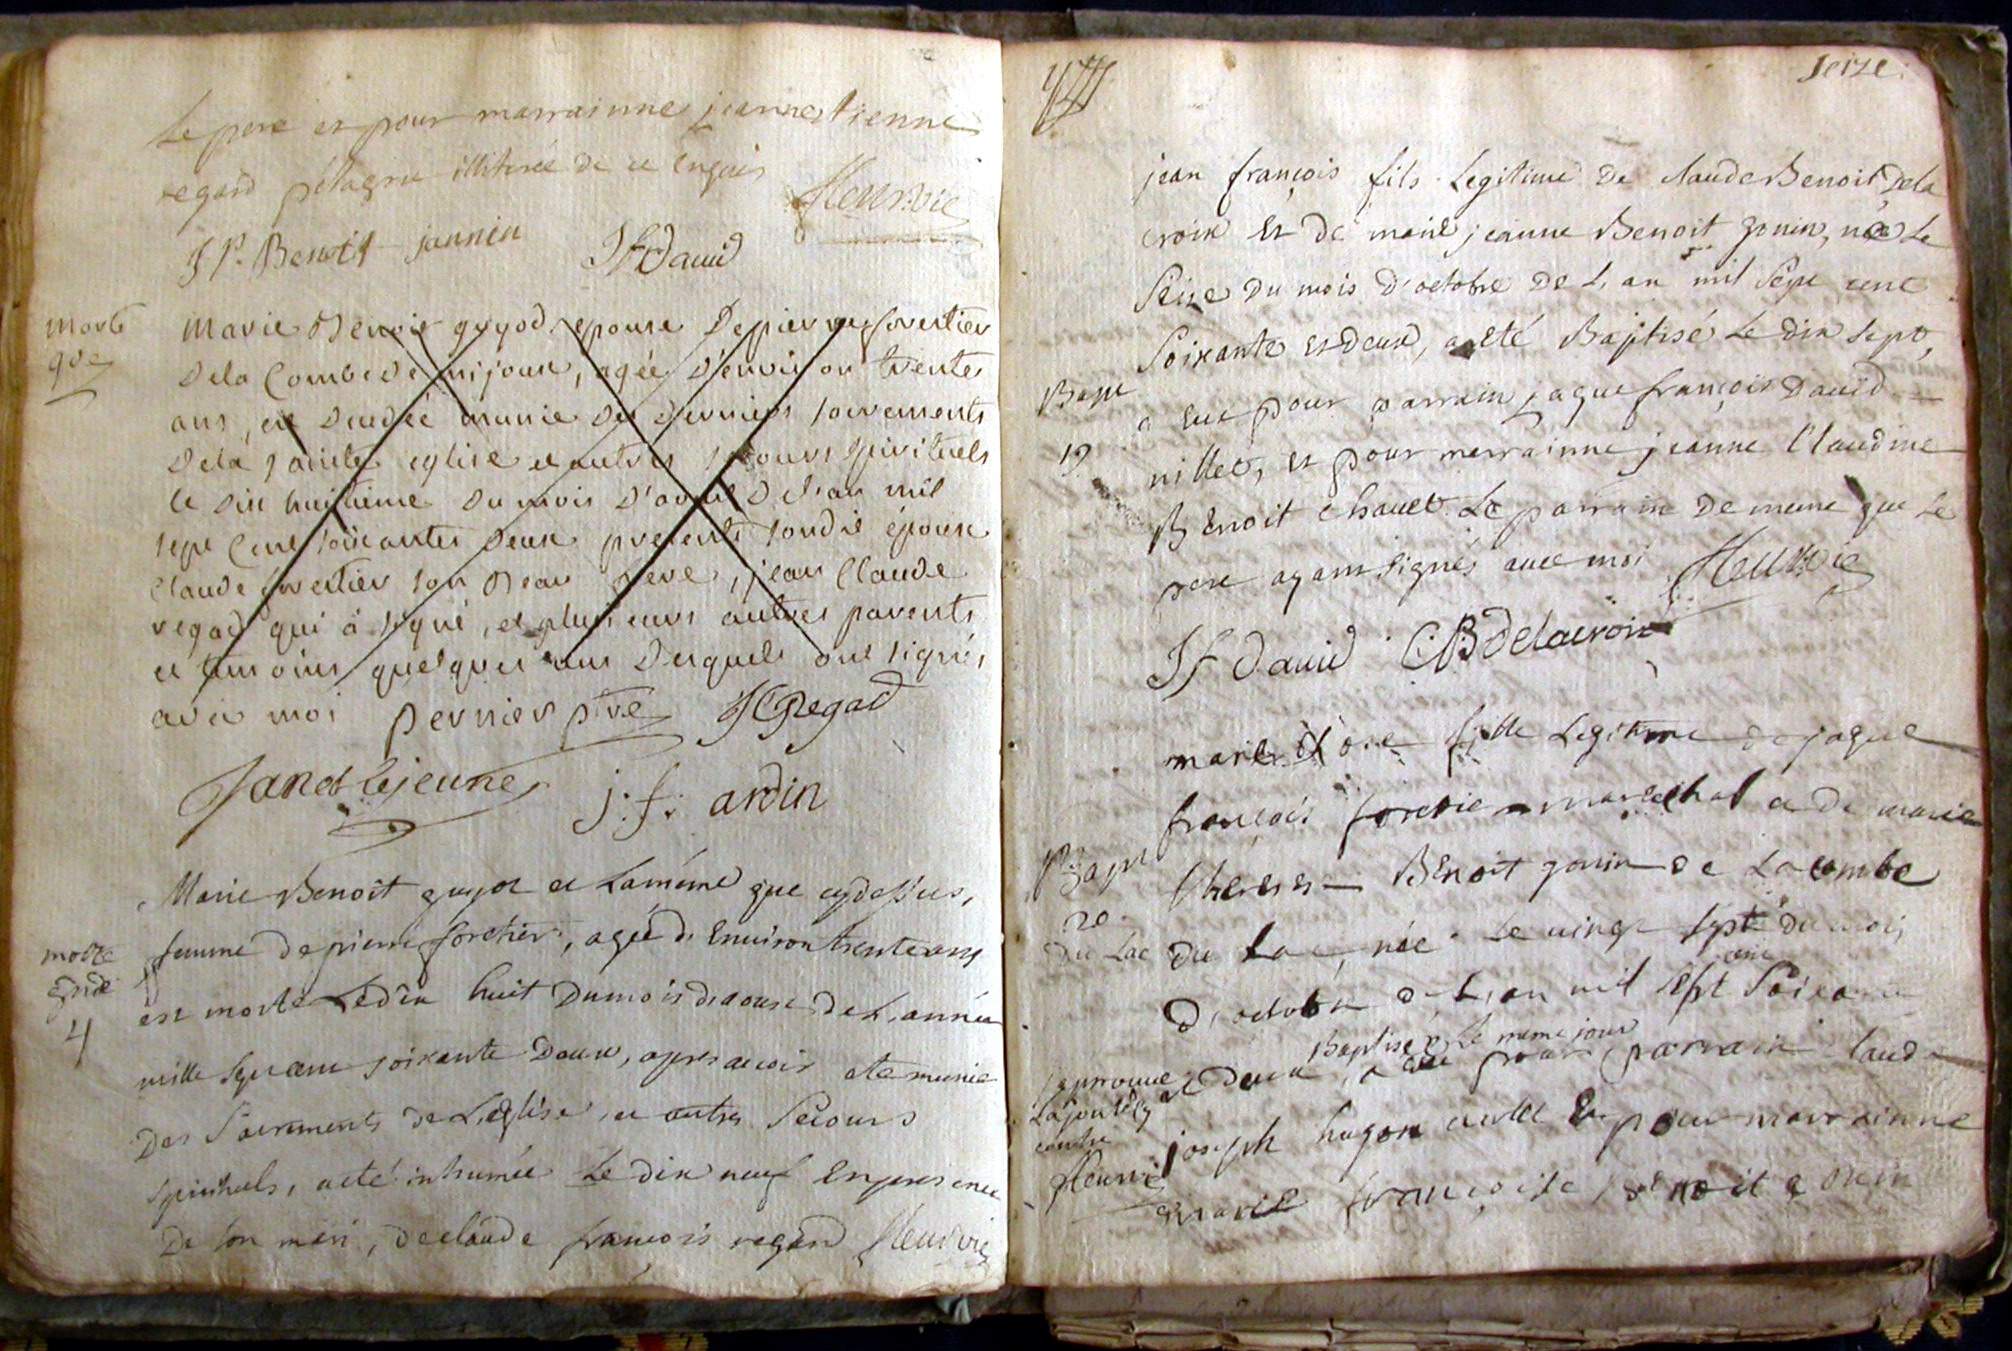 Le pere et pour marrainne jeannestienne
regard pelagru illiterée de ce enquis
Fleurvie
J P. Benoit jannin JfDavid
morte
gde
Marie Benoit guyod epouse Depierre forestier
Dela Combe de mijoux, agée D'environ trente
ans, est Decedée munie des Derniers sacrements
Dela sainte eglise et autres secours spirituels
le dix huitieme du mois D'aout De l'an mil
sept Cent soixantes Deux presents sondit épouse
Claude forestier son Beau frere, jean Claude
regad qui à signé, et plusieurs autres parents
et temoins quelques uns Desquels ont signés
avec moi pernier ptre JCRegad
Janet Lejeune j: f: ardin
morte
gnde
4
Marie Benoit guyot et Lamême que cydessus,
femme depierre foretier, agée d'Environ trente ans
est morte Ledix huit Dumois deaoust de L'année
mille septcent soixante Deux, apres avoir ete munie
Des Sacrements de L'eglise, et autres Secours
Spirituels, aeté inhumée Le dix neuf Enpresence
De son mari, declaude françois regard fleurvie
Seize
jean françois fils Legitime De claudeBenoit Dela
croix Et De marie jeanne Benoit gonin, née Le
Seize Du mois d'octobre De L'an mil Sept cent
Soixante et deux, a eté Baptisé Le dix sept,
Bapt
19
a eut pour parrain jaque françois David
nillet, et pour marrainne jeanne Claudine
Benoit chavet Le parrain De meme que Le
pere ayant signés avec moi Fleurvie
Jf David C:B Delacroix
marie rose fille Legitime de jaque
françois foretier marechal et De marie
Bapt
20
Du Lac
therese Benoit gonin de Lacombe
du Lac, née Le vingt sept du mois
D'octobre De L'an mil sept cent Soixante
et deux, Baptisée Le meme jour a eut pour parrain Claude
japrouve
Lajoutée cy
contre
Fleurvie
joseph hugon Et pour marrainne
marie françoise Benoit gonin